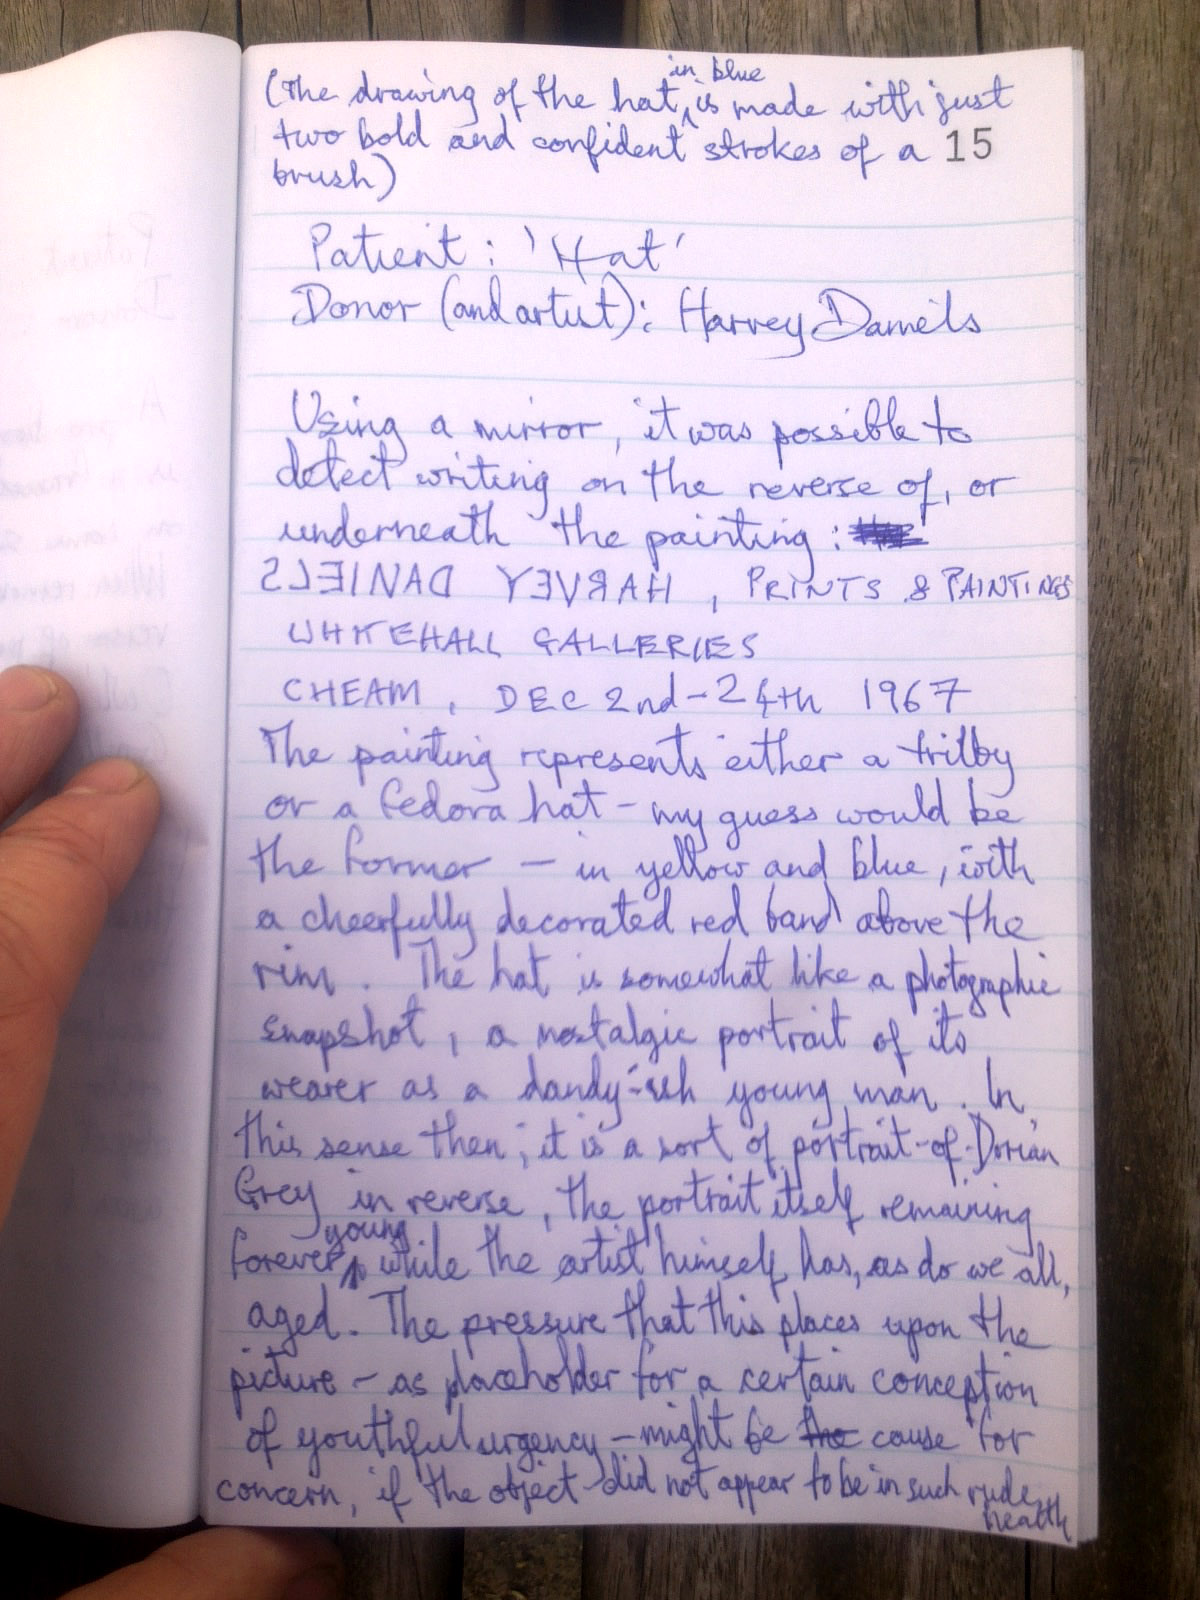 (The drawing of the hat in blue is made with just
two bold and confident strokes of a 15
brush)
Patient : 'Hat'
Donor (and artist): Harvey Daniels
Using a mirror, it was possible to
detect writing on the reverse of, or
underneath the painting :
HARVEY DANIELS , PRINTS & PAINTINGS
WHITEHALL GALLERIES
CHEAM , DEC 2nd-24th 1967
The painting represents either a trilby
or a fedora hat - my guess would be
the former - in yellow and blue, with
a cheerfully decorated red band above the
rim. The hat is somewhat like a photographic
snapshot, a nostalgic portrait of its
wearer as a dandy-ish young man. In
this sense then, it is a sort of portrait-of-Dorian
Grey in reverse, the portrait itself remaining
forever young while the artist himself has, as do we all,
aged. The pressure that this places upon the
picture - as placeholder for a certain conception
of youthful urgency - might be the cause for
concern, if the object did not appear to be in such rude
health